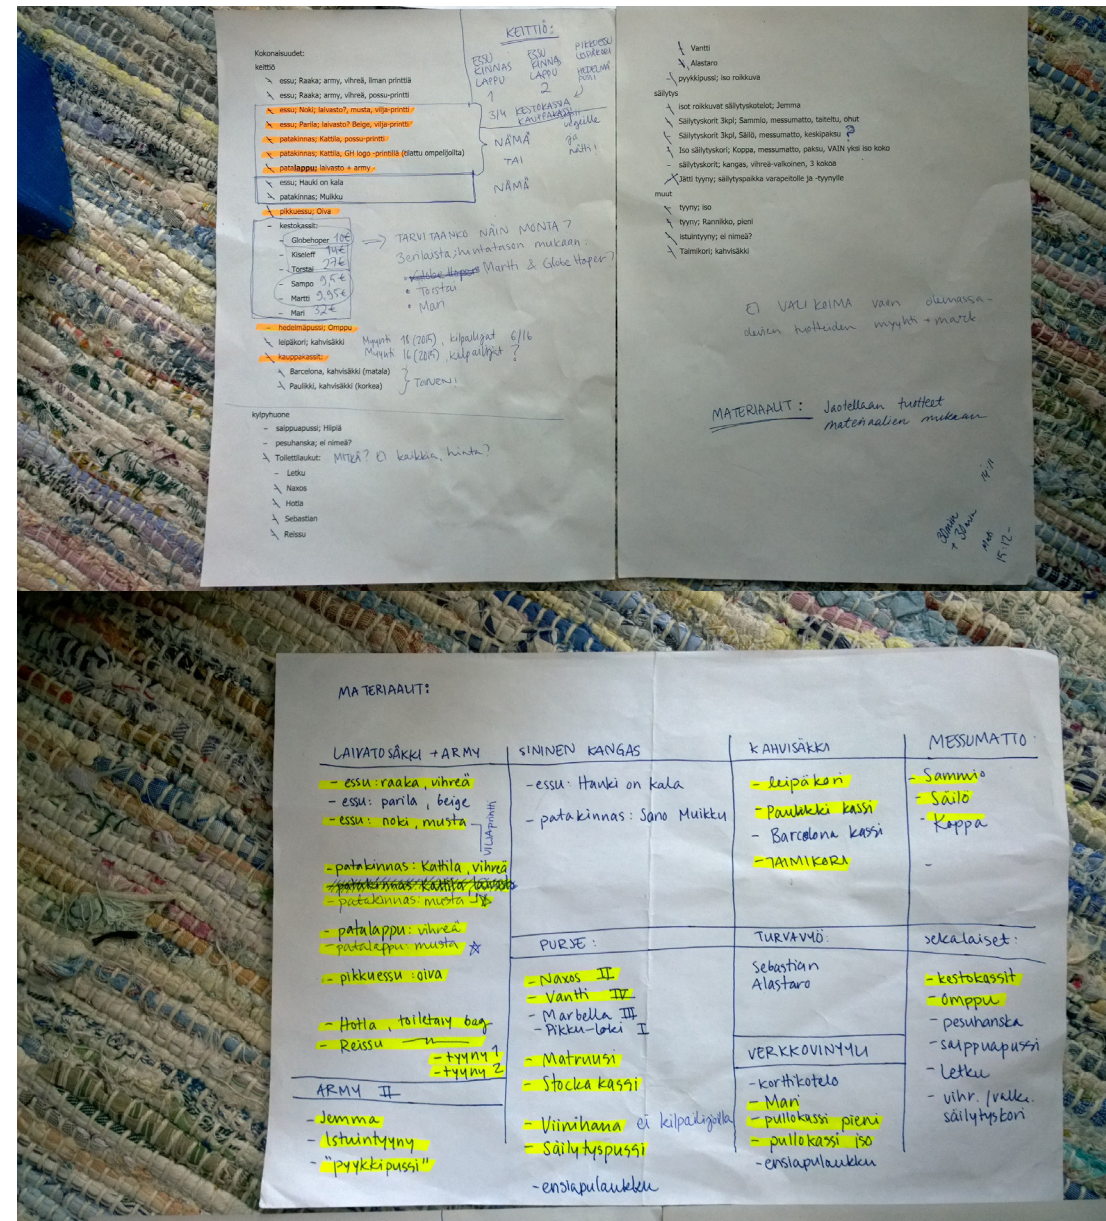 Kokonaisuudet:
keittiö
essu; Raaka; army, vihreä, ilman printtiä
essu; Raaka; army, vihreä, possu-printti
essu; Noki; laivasto?, musta, vilja-printti
essu; Parila; laivasto? Beige, vilja-printti
patakinnas; Kattila, possu-printti
patakinnas; Kattila, GH logo -printillä (tilattu ompelijoilta)
patalappu; laivasto + army
essu; Hauki on kala
patakinnas; Muikku
pikkuessu; Oiva
- kestokassit:
- Globehoper 10€
- Kiseleff 14€
- Torstai 27€
- Sampo 9,5€
- Martti 9,95€
- Mari 32€
- hedelmäpussi; Omppu
leipäkori; kahvisäkki
kauppakassit:
Barcelona, kahvisäkki (matala)
Paulikki, kahvisäkki (korkea)
KEITTIÖ:
ESSU
KINNAS
LAPPU
1
ESSU
KINNAS
LAPPU
2
PIKKUESSU
LEIPÄKORI
HEDELMÄ
PUSSI
3/4 KESTOKASSIA
KAUPPAKASSI
NÄMÄ
TAI
NÄMÄ
→ TARVITAANKO NÄIN MONTA?
3 erilaista; hintatason mukaan:
• Martti & GlobeHoper?
• Torstai
• Mari
Myynti 18 (2015), kilpailijat 6/16
Myynti 16 (2015), kilpailijat ?
} TOIVEN!
kylpyhuone
- saippuapussi; Hilpiä
- pesuhanska; ei nimeä?
Toilettilaukut: MITKÄ? EI kaikkia, hinta?
- Letku
Naxos
Hotla
Sebastian
Reissu
Vantti
Alastaro
pyykkipussi; iso roikkuva
säilytys
isot roikkuvat säilytyskotelot; Jemma
Säilytyskorit 3kpl; Sammio, messumatto, taiteltu, ohut
Säilytyskorit 3kpl, Säilö, messumatto, keskipaksu ?
Iso säilytyskori; Koppa, messumatto, paksu, VAIN yksi iso koko
- säilytyskorit; kangas, vihreä-valkoinen, 3 kokoa
Jätti tyyny; säilytyspaikka varapeitolle ja -tyynylle
muut
tyyny; iso
tyyny; Rannikko, pieni
istuintyyny; ei nimeä?
Taimikori; kahvisäkki
EI VALIKOIMA vaan olemassa-
olevien tuotteiden myynti + mark
MATERIAALIT: Jaotellaan tuotteet
materiaalien mukaan
30min
+ 30min
15:12-
MATERIAALIT:
LAIVATOSÄKKI + ARMY
- essu: raaka, vihreä
- essu: parila, beige
- essu: noki, musta
VILJAprintti
- patakinnas: Kattila, vihreä
- patakinnas Kattila laivasto
- patakinnas: musta ☆
- patalappu: vihreä
- patalappu: musta ☆
- pikkuessu: oiva
- Hotla, toiletary bag
- Reissu
- tyyny 1
- tyyny 2
ARMY II
- Jemma
- Istuintyyny
- "pyykkipussi"
SININEN KANGAS
- essu: Hauki on kala
- patakinnas: Sano Muikku
PURJE:
- Naxos II
- Vantti IV
- Marbella III
- Pikku-loki I
- Matruusi
- Stocka kassi
- Viinihana ei kilpailijoilla
- Säilytyspussi
- ensiapulaukku
KAHVISÄKKI
- leipäkori
- Paulikki kassi
- Barcelona kassi
- TAIMIKORI
TURVAVYÖ:
Sebastian
Alastaro
VERKKOVINYYLI
- korttikotelo
- Mari
- pullokassi pieni
- pullokassi iso
- ensiapulaukku
MESSUMATTO:
- Sammio
- Säilö
- Koppa
-
Sekalaiset:
- kestokassit
- Omppu
- pesuhanska
- saippuapussi
- Letku
- vihr./valk.
säilytyskori